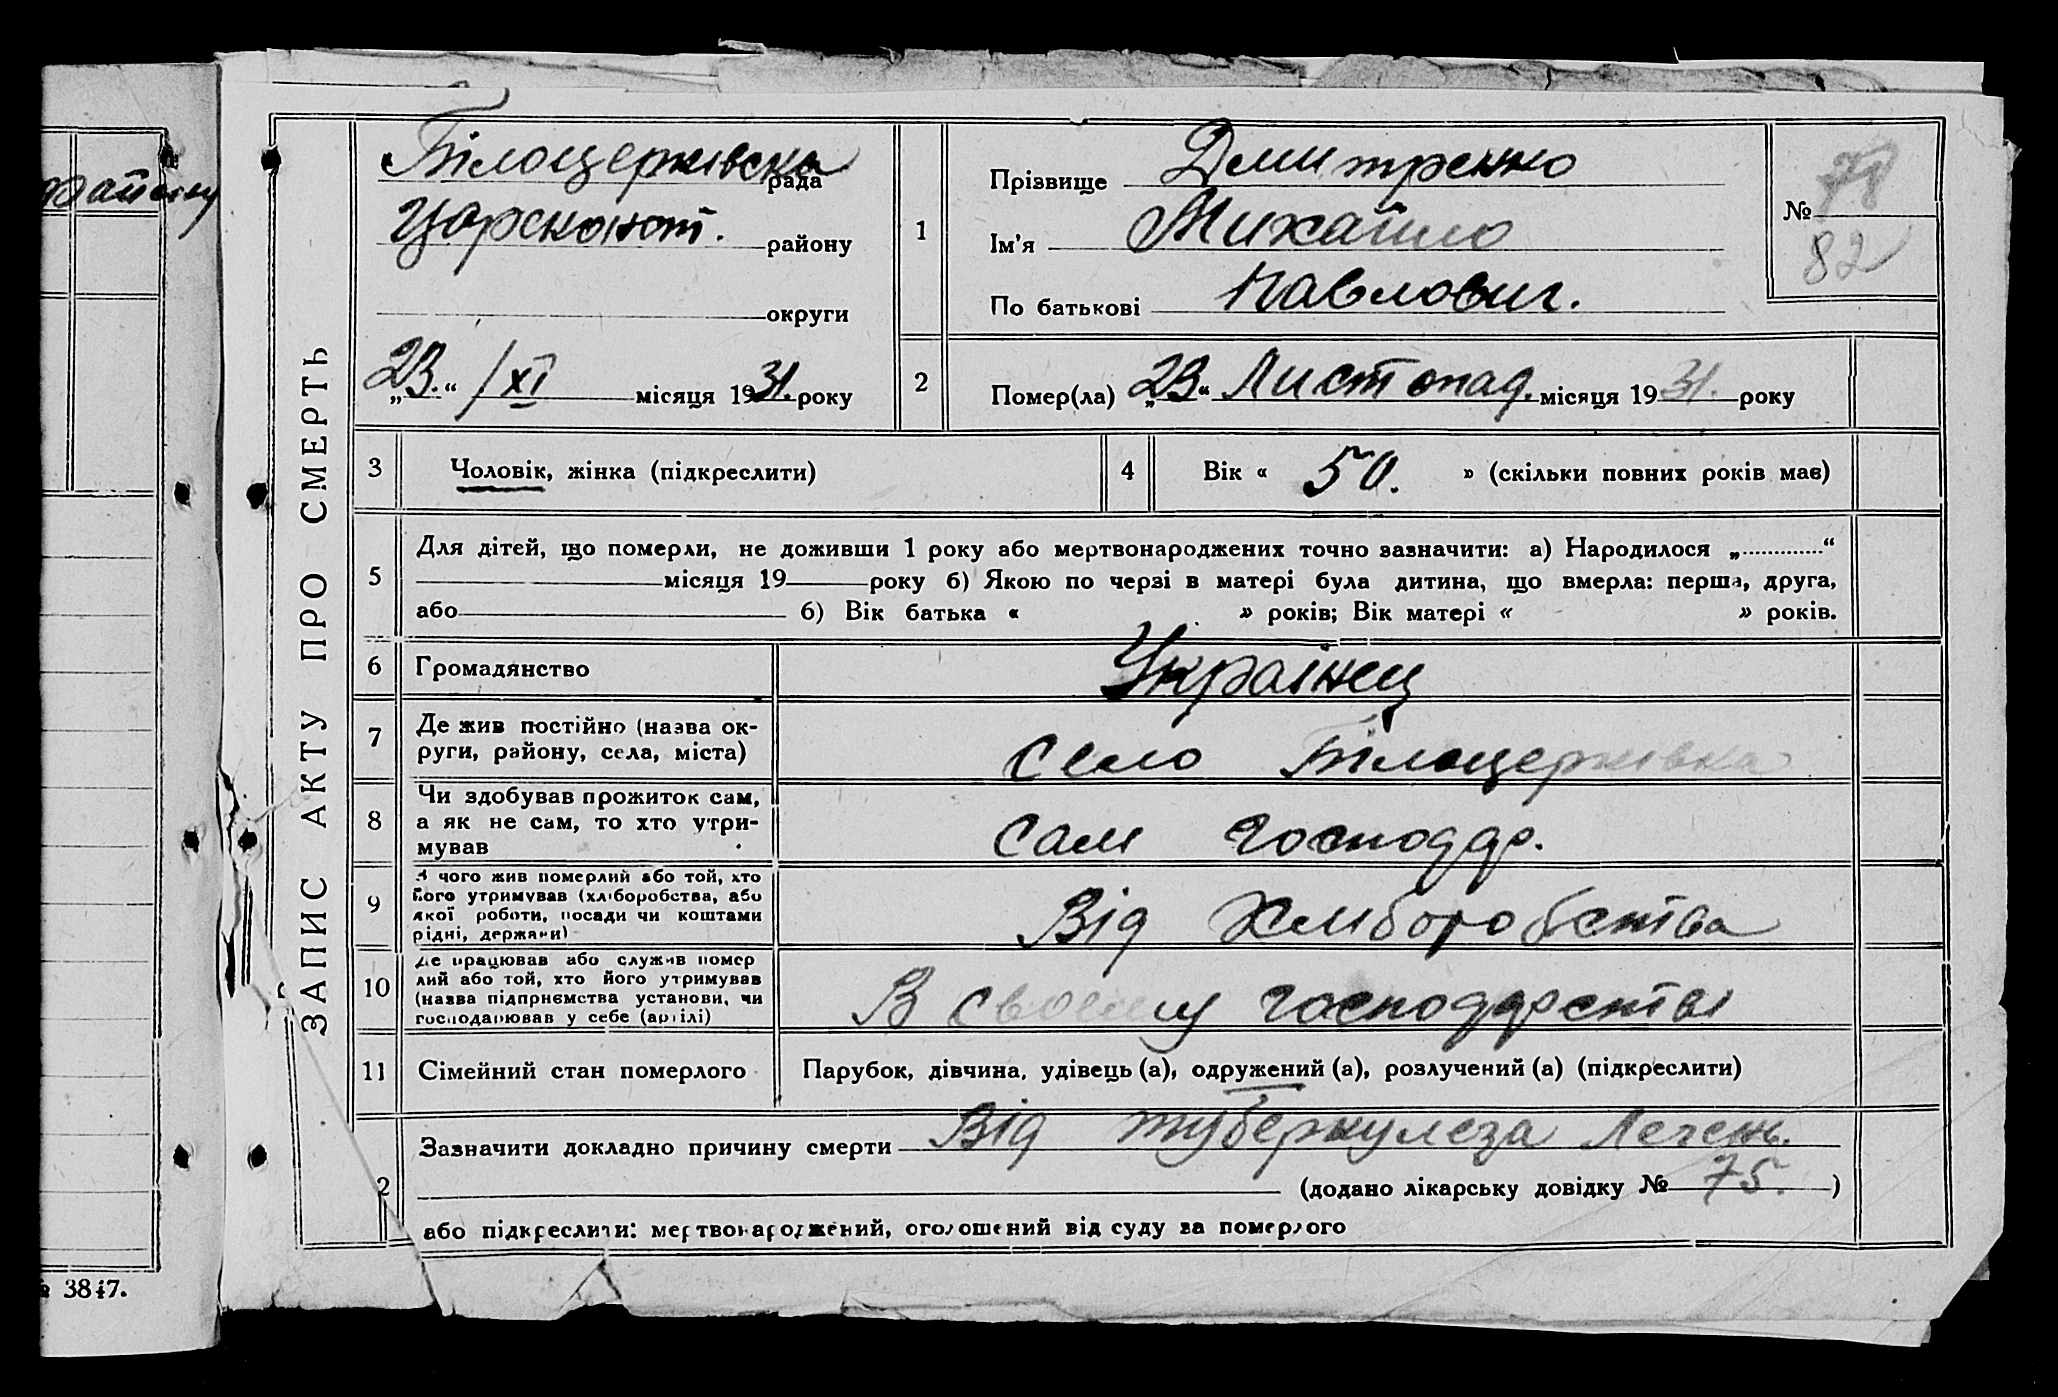 ЗАПИС АКТУ ПРО СМЕРТЬ
Білоцерківска рада
району
округи
„23.“ /XI місяця 1931. року
1
Прізвище Дмитренко
Ім'я Михайло
По батькові Павлович.
№ 78
82
2
Помер(ла) „23“ Листопад. місяця 1931. року
3
Чоловік, жінка (підкреслити)
4
Вік « 50. » (скільки повних років має)
5
Для дітей, що померли, не доживши 1 року або мертвонароджених точно зазначити: а) Народилося „.............“
місяця 19 року б) Якою по черзі в матері була дитина, що вмерла: перша, друга,
або б) Вік батька « » років; Вік матері « » років.
6
Громадянство
Українец
7
Де жив постійно (назва ок-
руги, району, села, міста)
село Білоцерківка
8
Чи здобував прожиток сам,
а як не сам, то хто утри-
мував
Сам господар.
9
З чого жив померлий або той, хто
його утримував (хліборобства, або
якої роботи, посади чи коштами
рідні, держави)
Від Хлиборобства
10
Де працював або служив помер
лий або той, хто його утримував
(назва підприємства установи, чи
господарював у себе (артілі)
В своему господарстві
11
Сімейний стан померлого
Парубок, дівчина, удівець (а), одружений (а), розлучений (а) (підкреслити)
2
Зазначити докладно причину смерти Від туберкулеза Легень.
(додано лікарську довідку № 75. )
або підкреслити: мертвонароджений, оголошений від суду за померлого
3847.